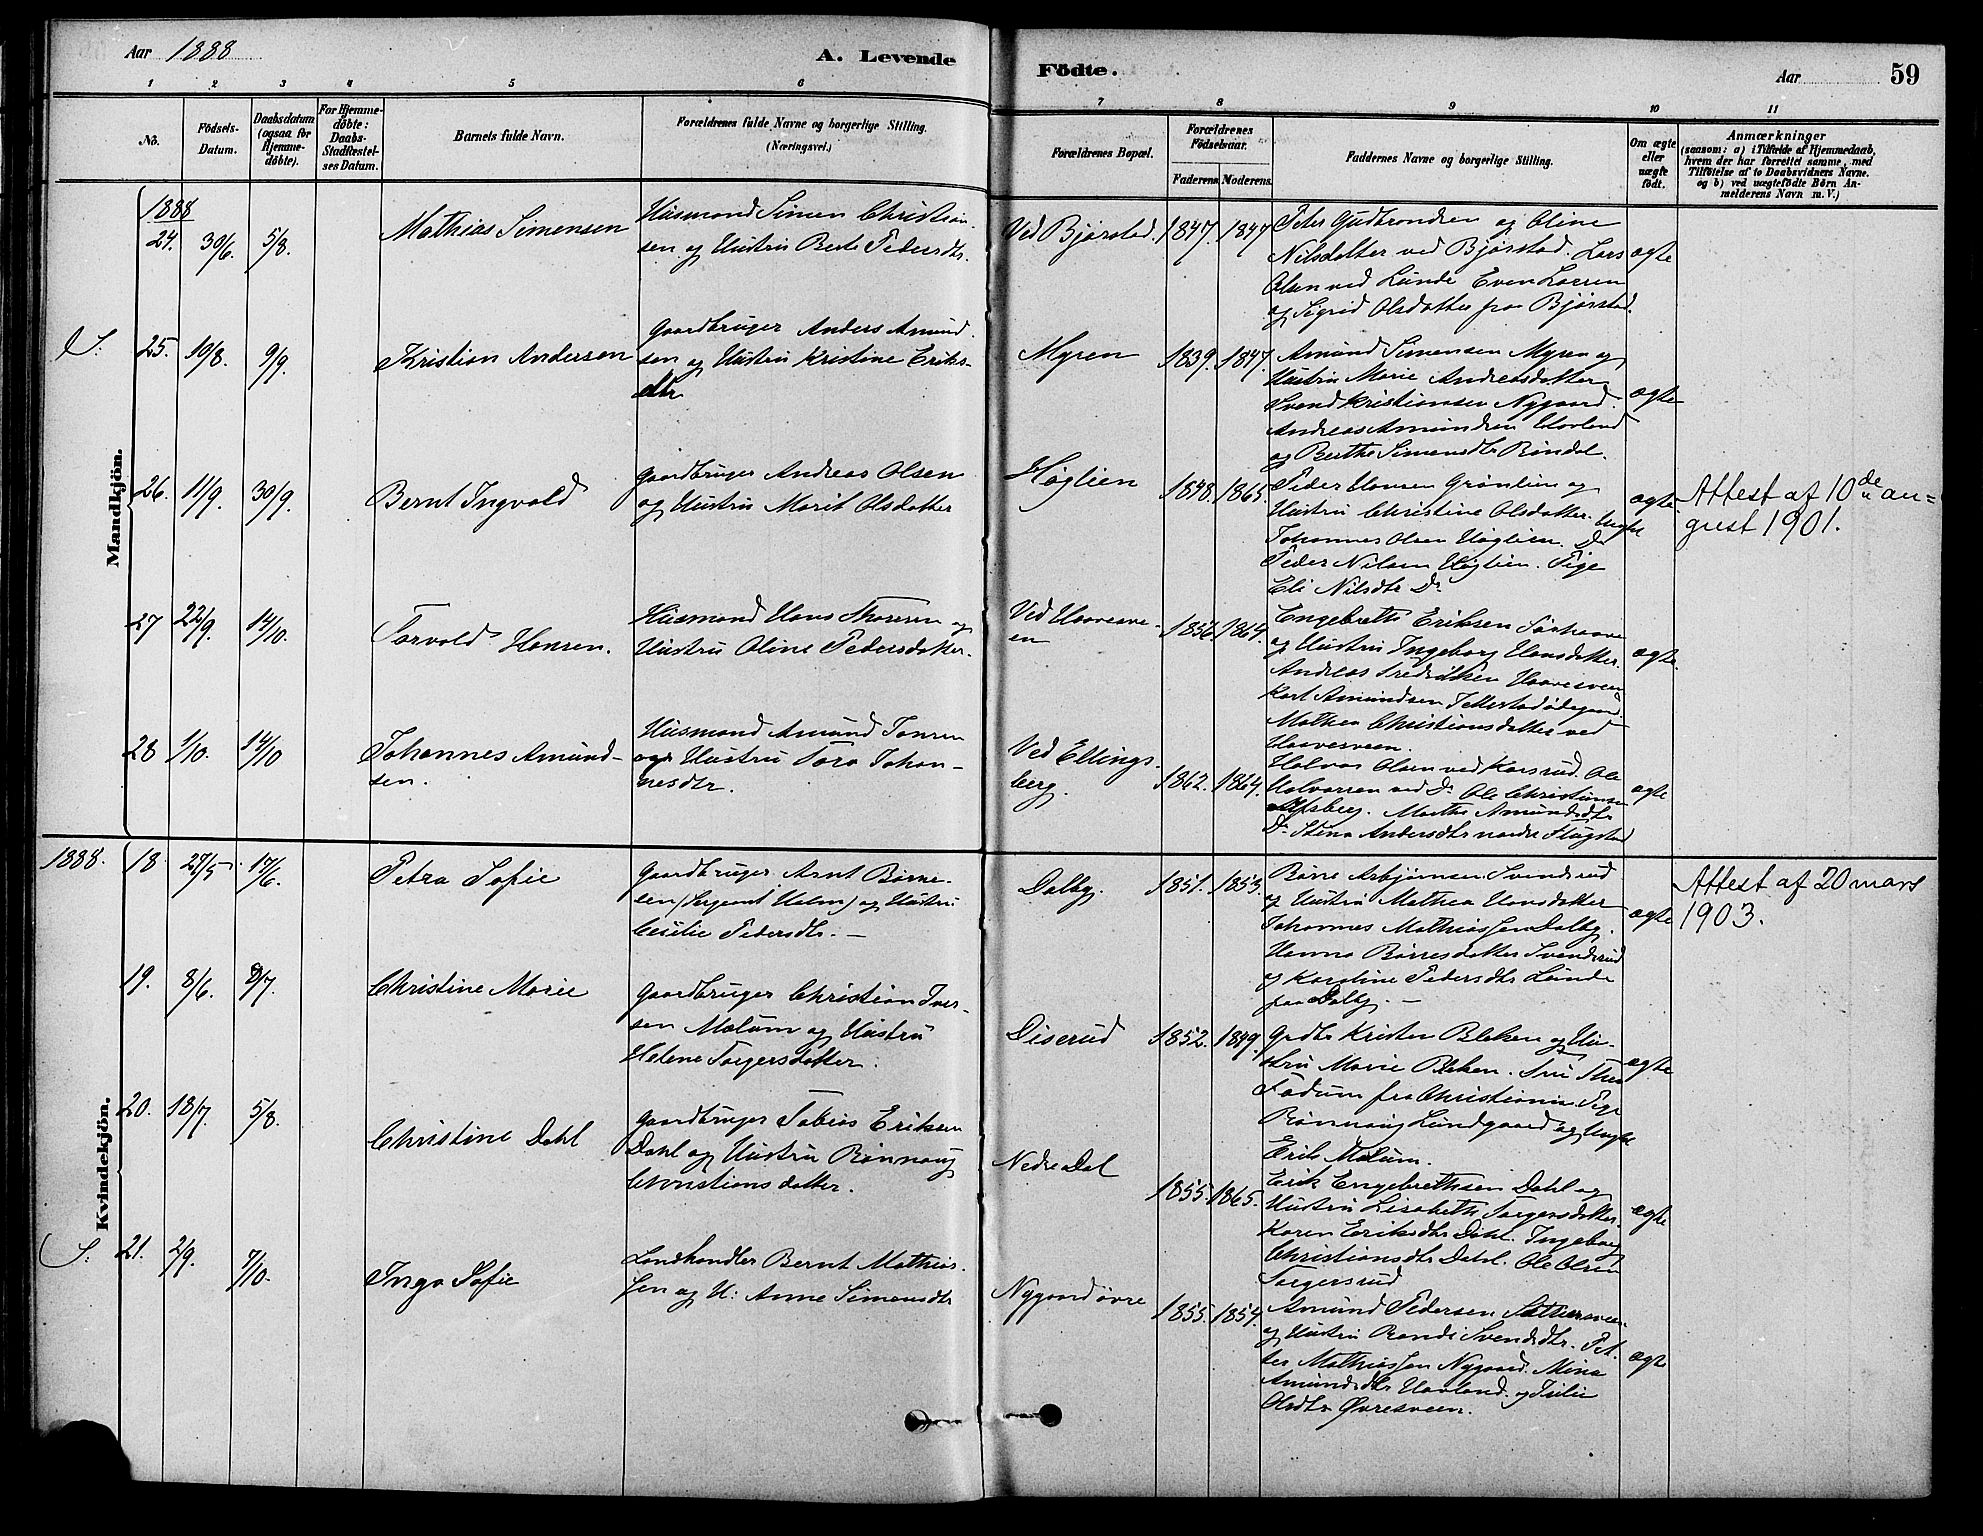 Aar 1888
A. Levende
Födte.
Aar
59
1 2 3 4 5 6 7 8 9 10 11
No.
Födsels-
Datum.
Daabsdatum
(ogsaa for
Hjemme-
döbte).
For Hjemme-
döbte:
Daabs-
Stadfæstel-
ses Datum.
Barnets fulde Navn.
Forældrenes fulde Navne og borgerlige Stilling.
(Næringsvei.)
Forældrenes Bopæl.
Forældrenes
Födselsaar.
Faderens. Moderens.
Faddernes Navne og borgerlige Stilling.
Om ægte
eller
uægte
födt.
Anmærkninger
(saasom: a) i Tilfælde af Hjemmedaab,
hvem der har forrettet samme, med
Tilföielse af to Daabsvidners Navne.
og b) ved uægtefödte Börn An-
melderens Navn m. V.)
Mandkjön.
1888
24. 30/6. 5/8.
Mathias Simensen
Husmand Simen Christian-
sen og Hustru Berte Pedersdtr.
Ved Bjørstad. 1847. 1847
Peter Gudbrandsen og Oline
Nilsdatter ved Bjørstad. Lars
Olsen ved Lunde Even Larsen
og Sigrid Olsdatter paa Bjørstad.
ægte
25. 19/8. 9/9.
Kristian Andersen
Gaardbruger Anders Amund-
sen og Hustru Kristine Eriks-
dtr
Myren 1839. 1847.
Amund Simensen Myren og
Hustru Marie Andreasdatter
Svend Kristiansen Nygaard.
Andreas Amundsen Havland
og Berthe Simensdtr Rindal.
ægte
26. 11/9. 30/9.
Bernt Ingvald
Gaardbruger Andreas Olsen
og Hustru Marit Olsdatter
Høglien 1848. 1865.
Peder Hansen Grønlien og
Hustru Christine Olsdatter. Ungk
Johannes Olsen Høglien. Do
Peder Nilsen Høglien. Pige
Eli Nilsdtr Do
ægte
Attest af 10de au=
gust 1901.
27 22/9. 14/10.
Torvald Hansen.
Husmand Hans Thoresen og
Hustru Oline Pedersdatter.
Ved Haavesve-
en 1856. 1864.
Engebreth Eriksen Sørhaave
og Hustru Ingeborg Hansdatter.
Andreas Fredriksen Haavesveen
Karl Amundsen
Mathea Christiansdatter ved
Haavesveen.
ægte.
28 1/10. 14/10
Johannes Amund-
sen.
Husmand Amund Jonsen
og Hustru Tora Johan-
nesdtr.
Ved Ellings-
berg. 1862. 1864.
Halvor Olsen ved Korsrud. Ole
Halvorsen ved Do Ole Christiansen
Marthe Amundsdtr
Do Stina Andersdtr nordre Flugstad
ægte
Kvindekjön.
1888. 18. 27/5. 17/6.
Petra Sofie
Gaardbruger Arnt Børre-
sen (Sergeant Holm) og Hustru
Cecilie Pedersdtr. —
Dalby. 1851. 1853.
Børre Arbjørnsen Svendsrud
og Hustru Mathea Hansdatter
Johannes Mathiassen Dalby.
Hanna Børresdatter Svendsrud
og Karoline Pedersdtr Lunde
paa Dalby. —
ægte
Attest af 20 mars
1903.
19. 8/6. 8/7.
Christine Marie
Gaardbruger Christian Iver-
sen Mælum og Hustru
Helene Torgersdatter.
Diserud 1852. 1849.
Gbr Kristen Bleken og Hu-
stru Marie Bleken. Fru Thea
fra Christiania. Pige
Rønnaug Lundgaard og Ungk
Erik Mælum.
ægte
20. 18/7. 5/8.
Christine Dahl
Gaardbruger Tobias Eriksen
Dahl og Hustru Rønnaug
Christiansdatter.
Nedre Dal
1855. 1865.
Erik Engebrethsen Dahl og
Hustru Lisabeth Torgersdatter.
Karen Eriksdtr Dahl. Ingeborg
Christiansdtr Dahl. Ole Olsen
Torgersrud
ægte
21. 2/9. 7/10.
Inga Sofie
Landhandler Bernt Mathias-
sen og H: Anne Simensdtr
Nygaard øvre 1855. 1854.
Amund Pedersen
og Hustru Randi Svendsdtr. Pet-
ter Mathiassen Nygaard. Mina
Amundsdtr Havland. og Julie
Olsdtr Øvresveen.
ægte